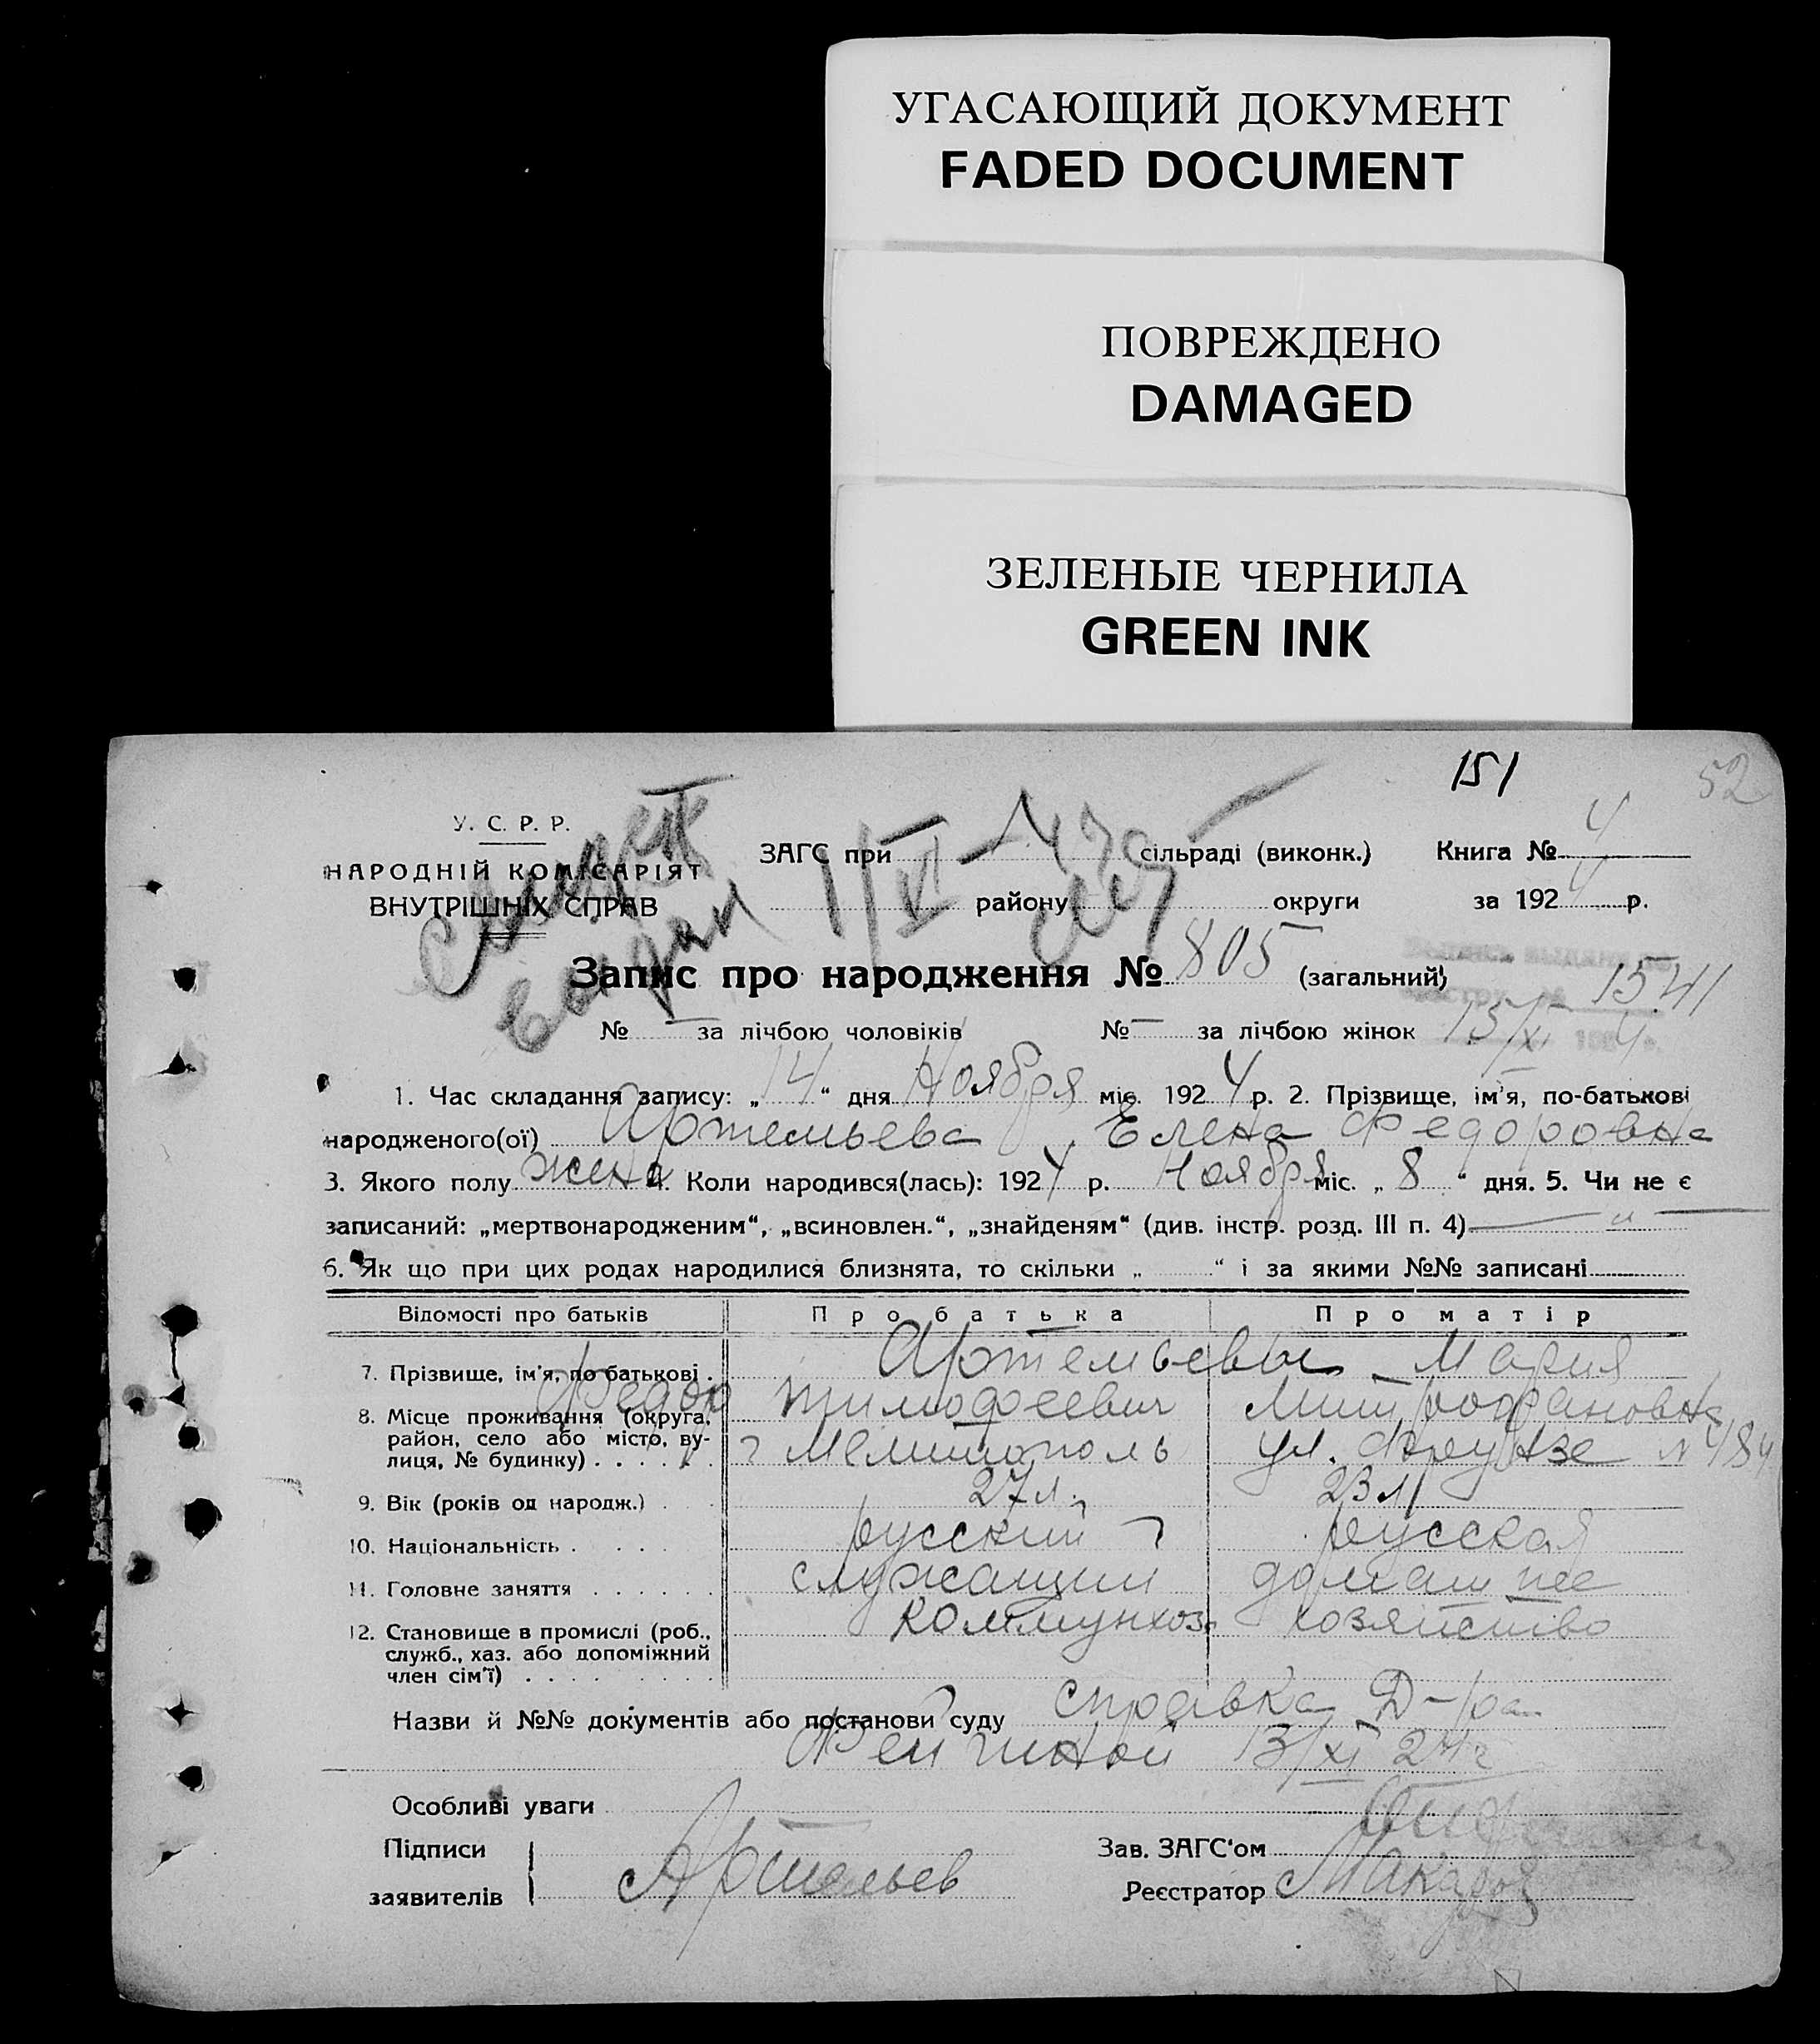 УГАСАЮЩИЙ ДОКУМЕНТ
FADED DOCUMENT
ПОВРЕЖДЕНО
DAMAGED
ЗЕЛЕНЫЕ ЧЕРНИЛА
GREEN INK
151
52
У. С. Р. Р.
НАРОДНІЙ КОМІСАРІЯТ
ВНУТРІШНІХ СПРАВ
ЗАГС при сільраді (виконк.) Книга № 4
району округи за 1924 р.
Запис про народження № 805 (загальний)
1541
№ — за лічбою чоловіків № — за лічбою жінок 13/XI 4
1. Час складання запису: „14“ дня Ноября міс. 1924 р. 2. Прізвище, ім'я, по-батькові
народженого(ої) Артемьева Елена Федоровна
3. Якого полу жена 4. Коли народився(лась): 1924 р. Ноября міс. „8“ дня. 5. Чи не є
записаний: „мертвонародженим“, „всиновлен.“, „знайденям“ (див. інстр. розд. III п. 4)
6. Як що при цих родах народилися близнята, то скільки „ “ і за якими №№ записані
Відомості про батьків Про батька Про матір
7. Прізвище, ім'я, по батькові . Артемьевы Мария
Федор Тимофеевич Митрофановна
8. Місце проживання (округа, район, село або місто, вулиця, № будинку) г Мелитополь ул. Фрунзе № 184
9. Вік (років од народж.) 27 л. 23 л
10. Національність русский русская
11. Головне заняття служащий домашнее
12. Становище в промислі (роб., служб., хаз. або допоміжний член сім'ї) коммунхоз хозяйство
Назви й №№ документів або постанови суду справка Д-ра
13/XI 24 г
Особливі уваги
Підписи
заявителів Артемьев
Зав. ЗАГС'ом
Реєстратор